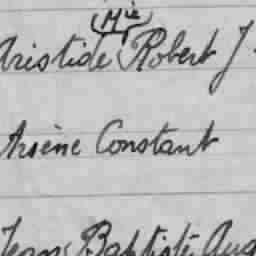 (Mie)
Aristide Robert J.
Arsène Constant
Jean Baptiste Aug